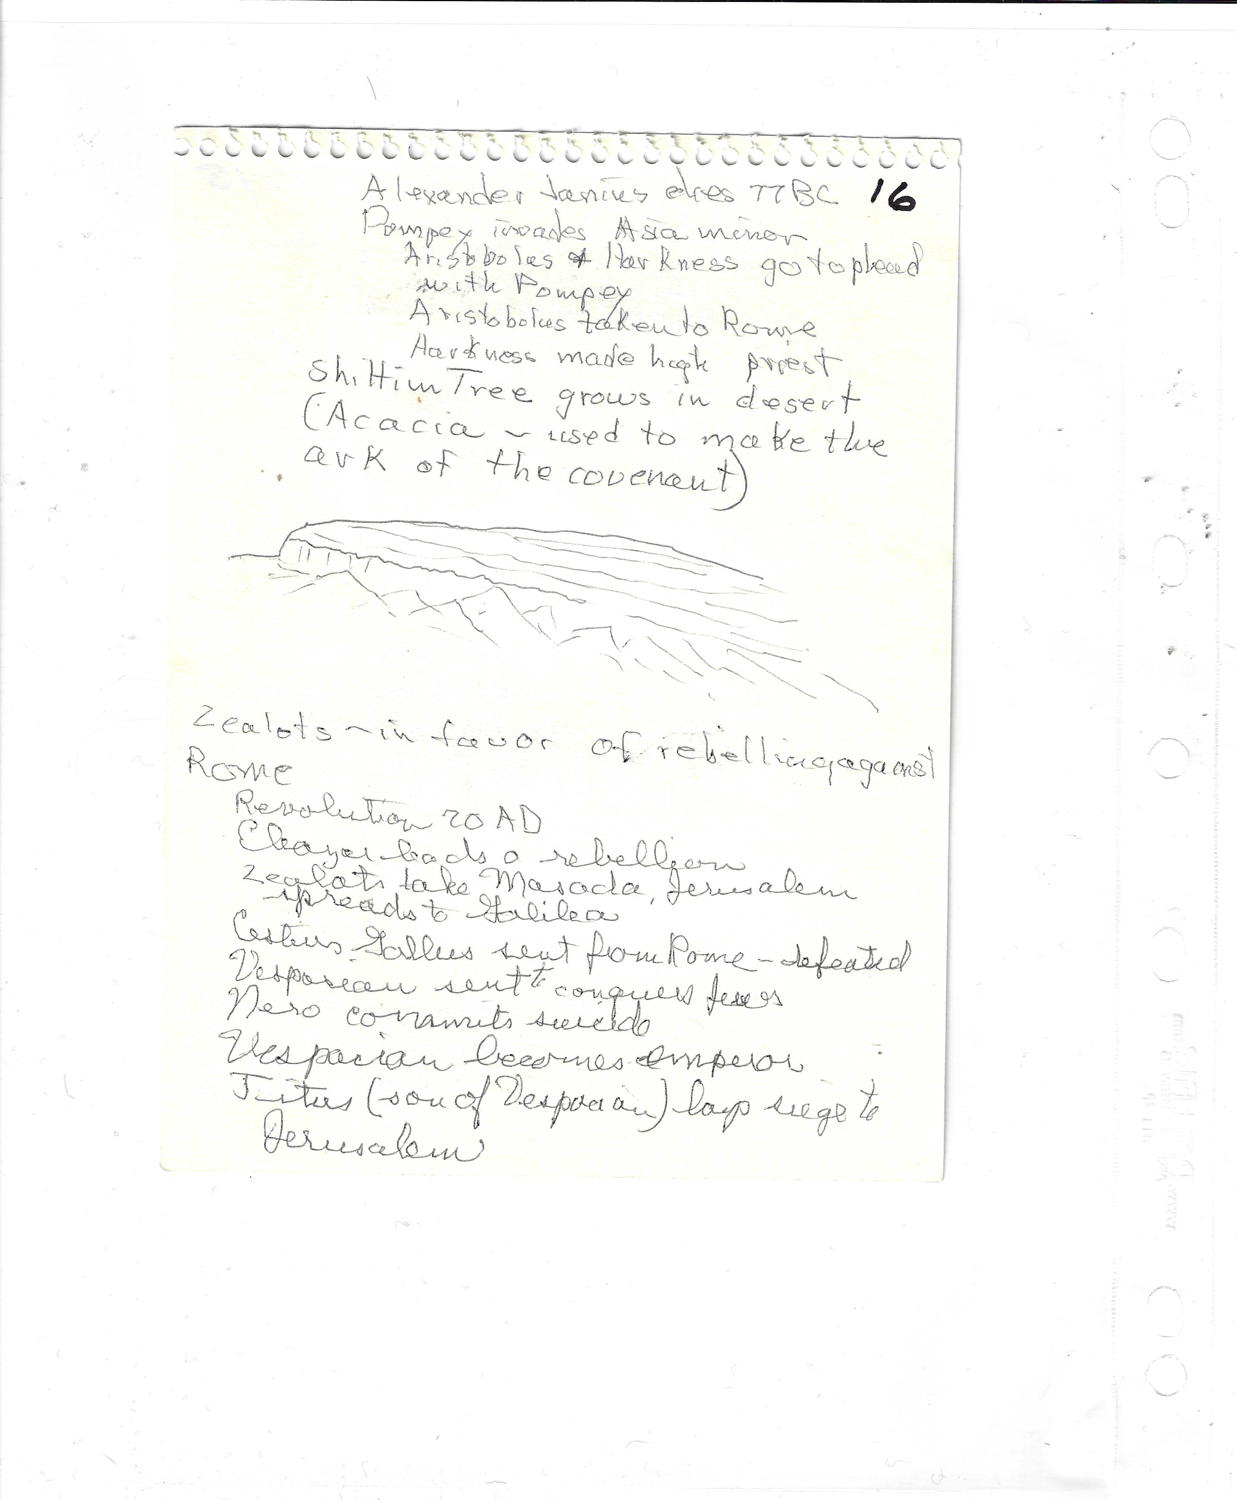 Alexander Janius dies 77BC 16
Pompey invades Asia minor
Aristobolus & Harkness go to plead
with Pompey
Aristobolus taken to Rome
Harkness made high priest
Shittim Tree grows in desert
(Acacia ~ used to make the
ark of the covenant)
Zealots ~ in favor of rebelling against
Rome
Revolution 70 AD
Eleazer leads a rebellion
Zealots take Masada, Jerusalem
spreads to Galilea
Cestius Gallus sent from Rome - defeated
Vespasian sent to conquer Jews
Nero commits suicide
Vespacian becomes emperor
Titus (son of Vespacian) lays siege to
Jerusalem